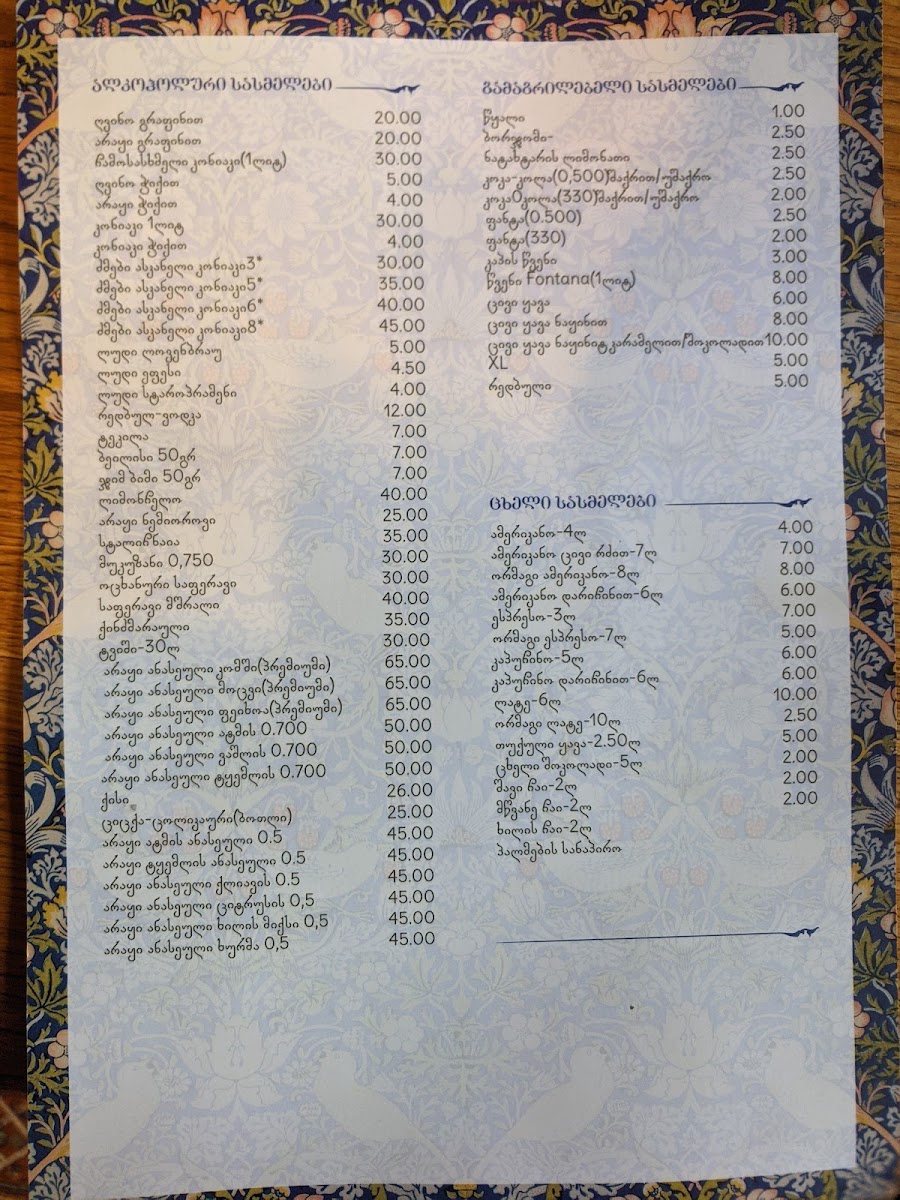 ალკოჰოლური სასმელები
ღვინო გრაფინით 20.00
არაყი გრაფინით 20.00
ჩამოსასხმელი კონიაკი(1ლიტ) 30.00
ღვინო ჭიქით 5.00
არაყი ჭიქით 4.00
კონიაკი 1ლიტ 30.00
კონიაკი ჭიქით 4.00
ძმები ასკანელი კონიაკი3* 30.00
ძმები ასკანელი კონიაკი5* 35.00
ძმები ასკანელი კონიაკი6* 40.00
ძმები ასკანელი კონიაკი8* 45.00
ლუდი ლოვენბრაუ 5.00
ლუდი ეფესი 4.50
ლუდი სტაროპრამენი 4.00
რედბულ-ვოდკა 12.00
ტეკილა 7.00
ბეილისი 50გრ 7.00
ჯიმ ბიმი 50გრ 7.00
ლიმონჩელო 40.00
არაყი ნემიოროვი 25.00
სტალიჩნაია 35.00
მუკუზანი 0,750 30.00
ოცხანური საფერავი 30.00
საფერავი მშრალი 40.00
ქინძმარაული 35.00
ტვიში-30ლ 30.00
არაყი ანასეული კომში(პრემიუმი) 65.00
არაყი ანასეული მოცვი(პრემიუმი) 65.00
არაყი ანასეული ფეიხოა(პრემიუმი) 65.00
არაყი ანასეული ატმის 0.700 50.00
არაყი ანასეული ვაშლის 0.700 50.00
არაყი ანასეული ტყემლის 0.700 50.00
ქისი 26.00
ციცქა-ცოლიკაური(ბოთლი) 25.00
არაყი ატმის ანასეული 0.5 45.00
არაყი ტყემლის ანასეული 0.5 45.00
არაყი ანასეული ქლიავის 0.5 45.00
არაყი ანასეული ციტრუსის 0,5 45.00
არაყი ანასეული ხილის მიქსი 0,5 45.00
არაყი ანასეული ხურმა 0,5 45.00
გამაგრილებელი სასმელები
წყალი 1.00
ბორჯომი- 2.50
ნატახტარის ლიმონათი 2.50
კოკა-კოლა(0,500)შაქრით/უშაქრო 2.50
კოკა0კოლა(330)შაქრით/უშაქრო 2.00
ფანტა(0.500) 2.50
ფანტა(330) 2.00
კაპის წვენი 3.00
წვენი Fontana(1ლიტ) 8.00
ცივი ყავა 6.00
ცივი ყავა ნაყინით 8.00
ცივი ყავა ნაყინიტკარამელით/შოკოლადით 10.00
XL 5.00
რედბული 5.00
ცხელი სასმელები
ამერიკანო-4ლ 4.00
ამერიკანო ცივი რძით-7ლ 7.00
ორმაგი ამერიკანო-8ლ 8.00
ამერიკანო დარიჩინით-6ლ 6.00
ესპრესო-3ლ 7.00
ორმაგი ესპრესო-7ლ 5.00
კაპუჩინო-5ლ 6.00
კაპუჩინო დარიჩინით-6ლ 6.00
ლატე-6ლ 10.00
ორმაგი ლატე-10ლ 2.50
თუქული ყავა-2.50ლ 5.00
ცხელი შოკოლადი-5ლ 2.00
შავი ჩაი-2ლ 2.00
მწვანე ჩაი-2ლ 2.00
ხილის ჩაი-2ლ
პალმების სანაპირო